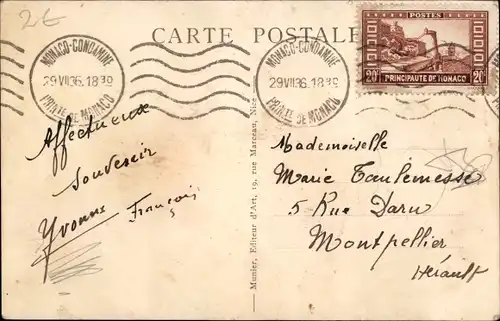 2€
CARTE POSTALE
MONACO-CONDAMINE
29 VII 36. 18 30
PRINCIPAUTE DE MONACO
MONACO-CONDAMINE
29 VII 36. 18 30
PTE DE MONACO
POSTES
20c 20c
PRINCIPAUTE DE MONACO
Affectueux
souvenir
Yvonne François
Munier, Editeur d'Art, 19, rue Marceau, Nice
Mademoiselle
Marie Taulemesse
5 Rue Daru
Montpellier
Hérault